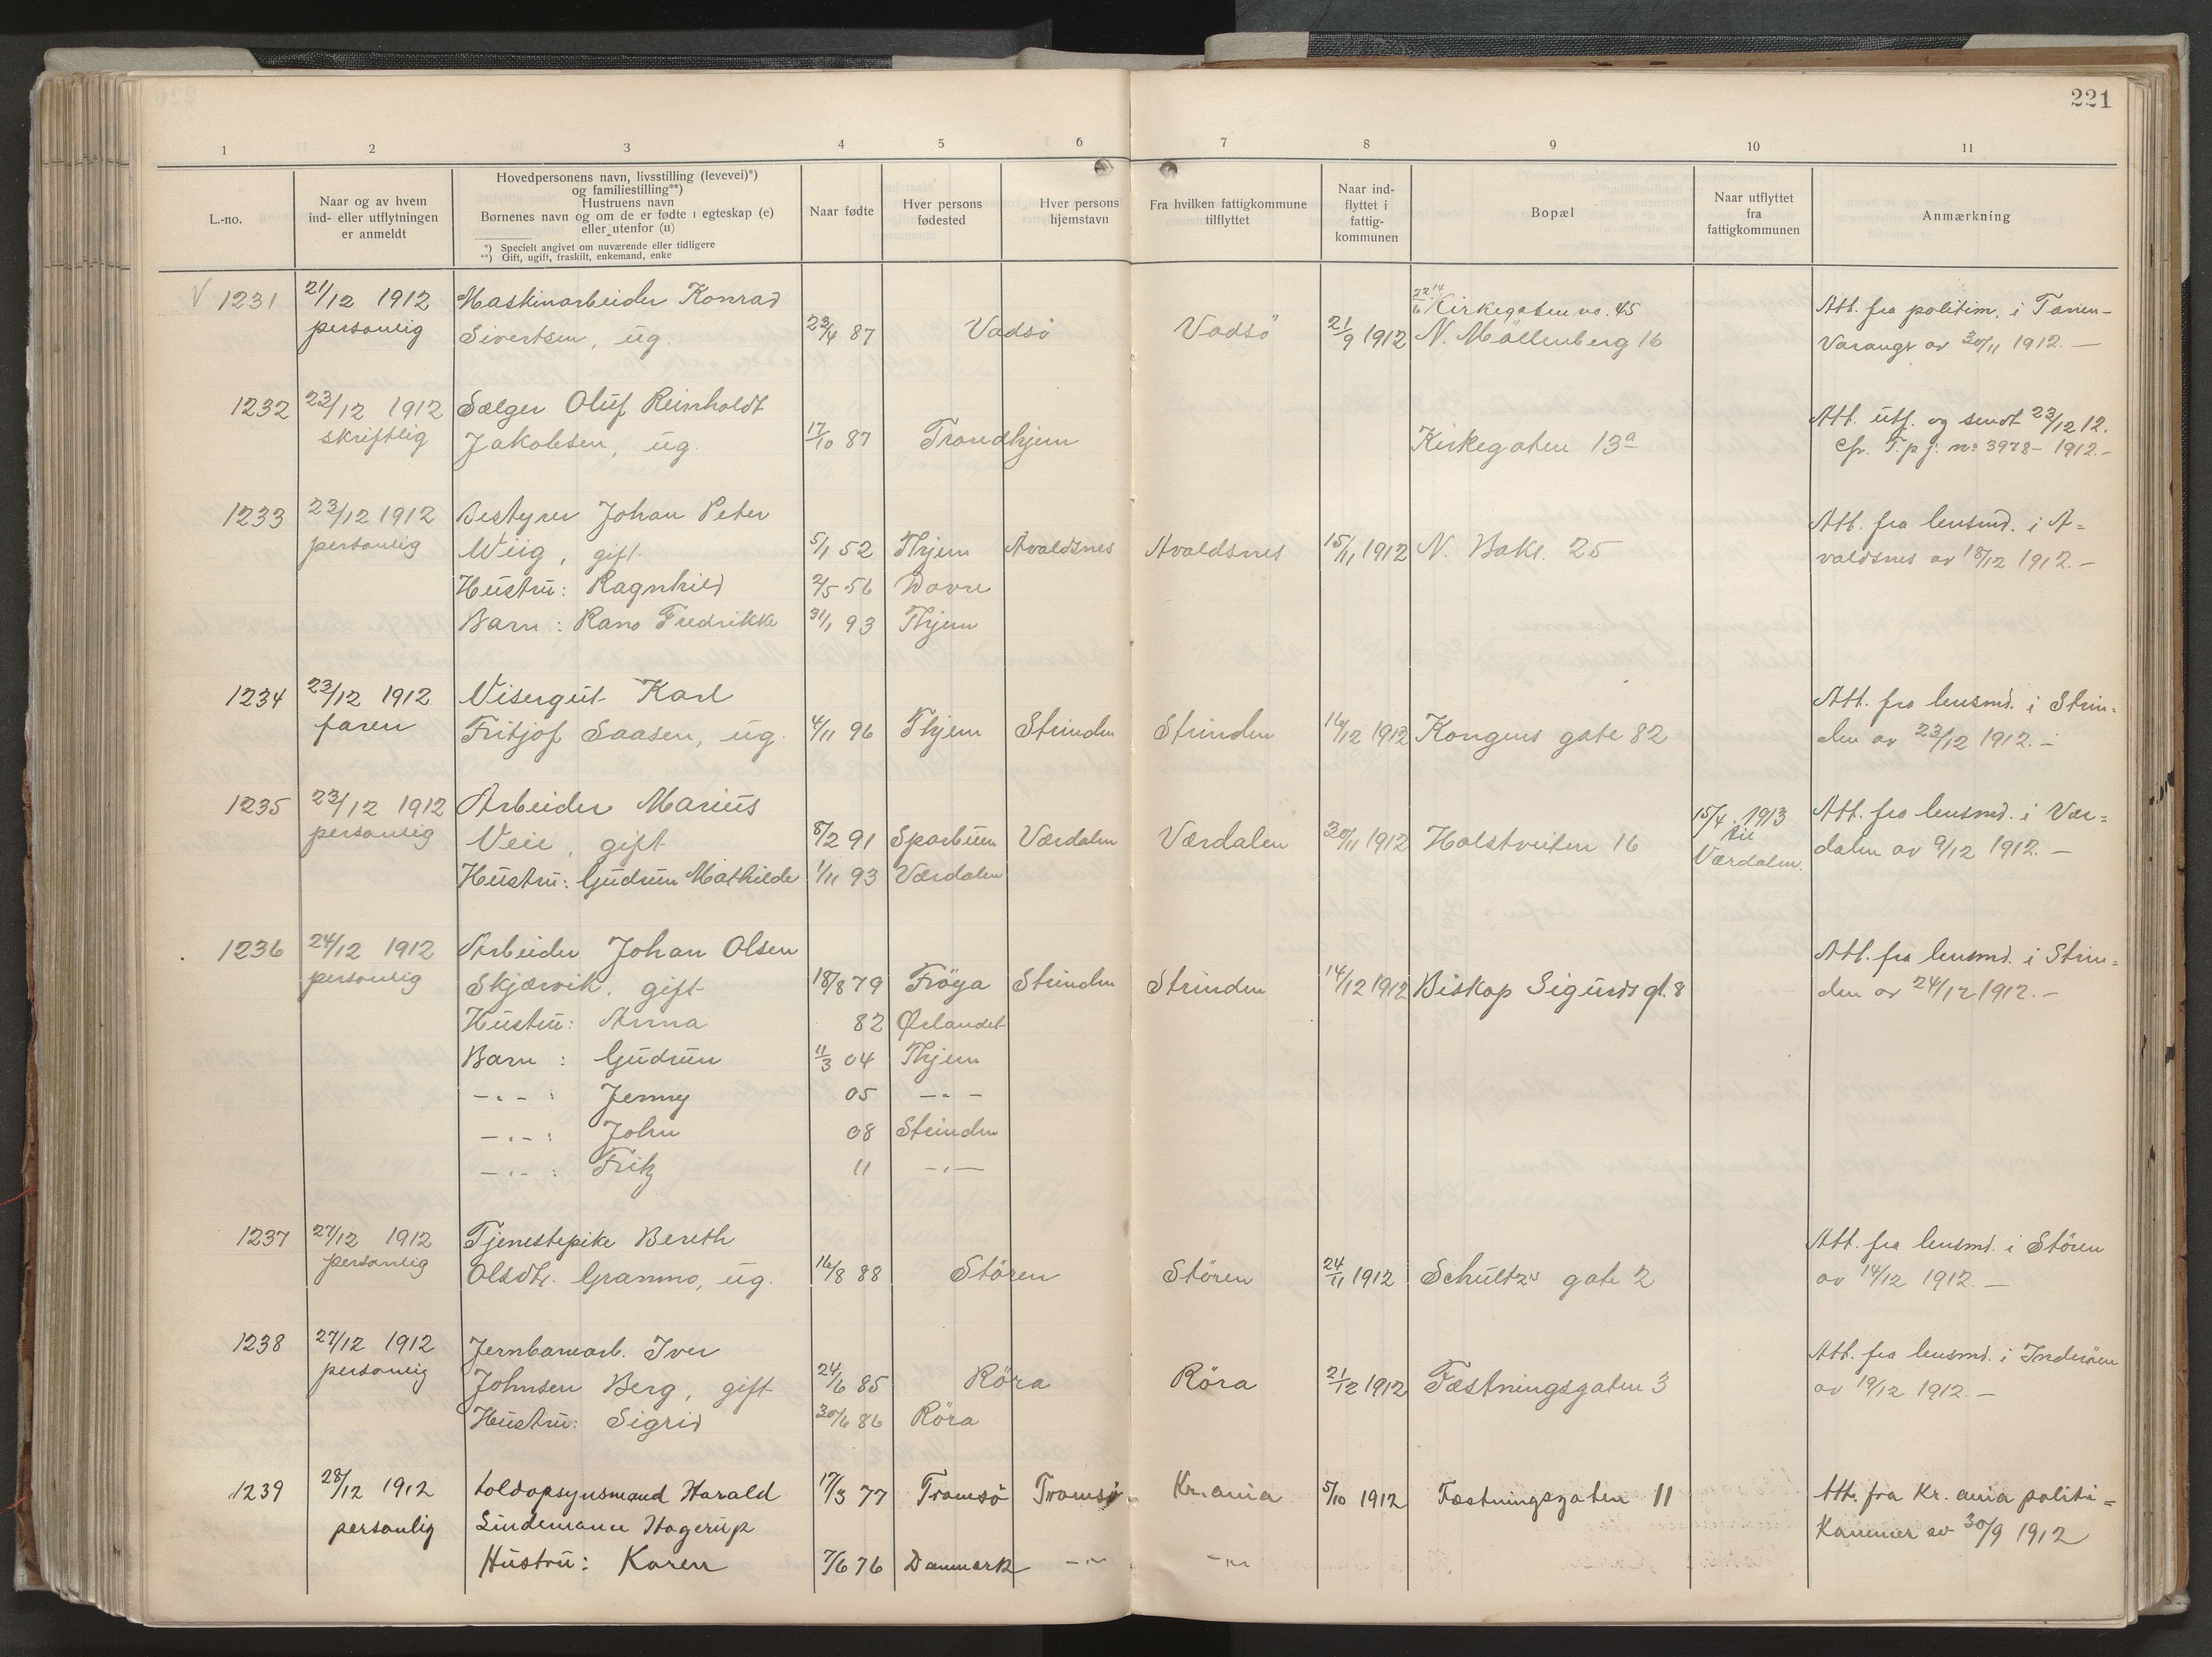 221
1 2 3 4 5 6 7 8 9 10 11
L.-no.
Naar og av hvem
ind- eller utflytningen
er anmeldt
Hovedpersonens navn, livsstilling (levevei)*)
og familiestilling**)
Hustruens navn
Børnenes navn og om de er fødte i egteskap (e)
eller utenfor (u)
*) Specielt angivet om nuværende eller tidligere
**) Gift, ugift, fraskilt, enkemand, enke
Naar fødte
Hver persons
fødested
Hver persons
hjemstavn
Fra hvilken fattigkommune
tilflyttet
Naar ind-
flyttet i
fattig-
kommunen
Bopæl
Naar utflyttet
fra
fattigkommunen
Anmærkning
V 1231 21/12 1912 Maskinarbeider Konrad 22/6 14 Kirkegaten no. 45 Att. fra politim. i Tanen-
personlig Sivertsen, ug. 23/4 87 Vadsö Vadsö 21/9 1912 N. Möllenberg 16 Varanger av 30/11 1912. —
1232 23/12 1912 Sælger Oluf Reinholdt Att. utf. og sendt 23/12 12.
skriftlig Jakobsen, ug. 17/10 87 Trondhjem Kirkegaten 13a Cfr. T.p.j. no 3978 - 1912.-
1233 23/12 1912 Bestyrer Johan Peter Att. fra lensmd. i A=
personlig Wiig, gift 5/1 52 Thjem Avaldsnes Avaldsnes 15/11 1912 N. Bakl. 25 valdsnes av 18/12 1912. —
Hustru: Ragnhild 2/5 56 Dovre
Barn : Fredrikke 31/1 93 Thjem
1234 23/12 1912 Visergut Karl Att. fra lensmd. i Strin-
faren Fritjof Saasen, ug. 4/11 96 Thjem Strinden Strinden 16/12 1912 Kongens gate 82 den av 23/12 1912. —
1235 23/12 1912 Arbeider Marius 15/4. 1913 Att. fra lensmd. i Vær=
personlig Veie, gift 8/2 91 Sparbuen Værdalen Værdalen 30/11 1912 Holstveiten 16 til dalen av 9/12 1912. —
Hustru: Gudrun Mathilde 1/11 93 Værdalen Værdalen.
1236 24/12 1912 Arbeider Johan Olsen Att. fra lensmd. i Strin=
personlig Skjærvik, gift 18/8 79 Fröya Strinden Strinden 14/12 1912 Biskop Sigurds gt. 8 den av 24/12 1912. —
Hustru: Anna 82 Ørlandet
Barn : Gudrun 11/3 04 Thjem
-.- : Jenny 05 -.-
-.- : John 08 Strinden
-.- : Fritz 11 -.-
1237 27/12 1912 Tjenestepike Bereth Att. fra lensmd. i Stören
personlig Olsdtr. Grammo, ug. 16/8 88 Stören Stören 24/11 1912 Schultz's gate 2 av 14/12 1912. —
1238 27/12 1912 Jernbanearb. Iver Att. fra lensmd. i Inderöen
personlig Johnsen Berg, gift 24/6 85 Röra Röra 21/12 1912 Fæstningsgaten 3 av 19/12 1912. —
Hustru: Sigrid 30/6 86 Röra
1239 28/12 1912 Toldopsynsmand Harald 17/3 77 Tromsö Tromsö Kr.ania 5/10 1912 Fæstningsgaten 11 Att. fra Kr. ania politi=
personlig Lindemann Hagerup Kammer av 30/9 1912
Hustru: Karen 7/6 76 Danmark -"- -"-